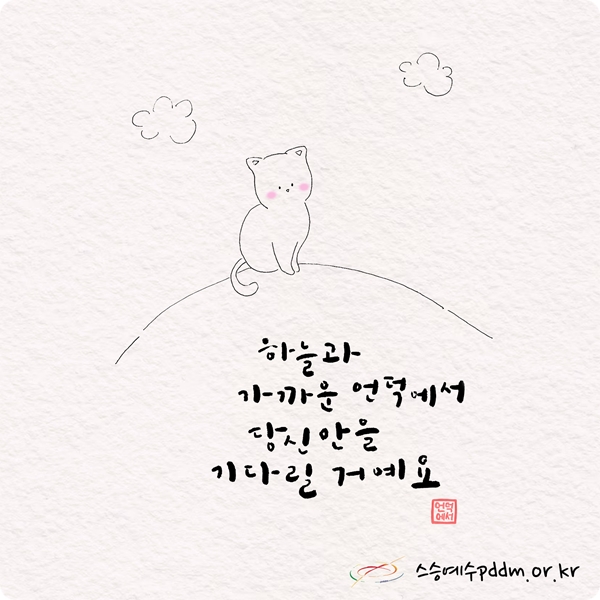 하늘과
가까운 언덕에서
당신안을
기다릴 거예요
언덕
에서
스승예수pddm.or.kr